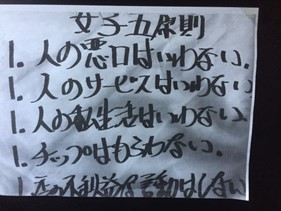 女子五原則
1. 人の悪口はいわない.
1. 人のサービスはいわない
1. 人の私生活はいわない.
1. チップはもらわない.
1. 店の不利益な言動はしない